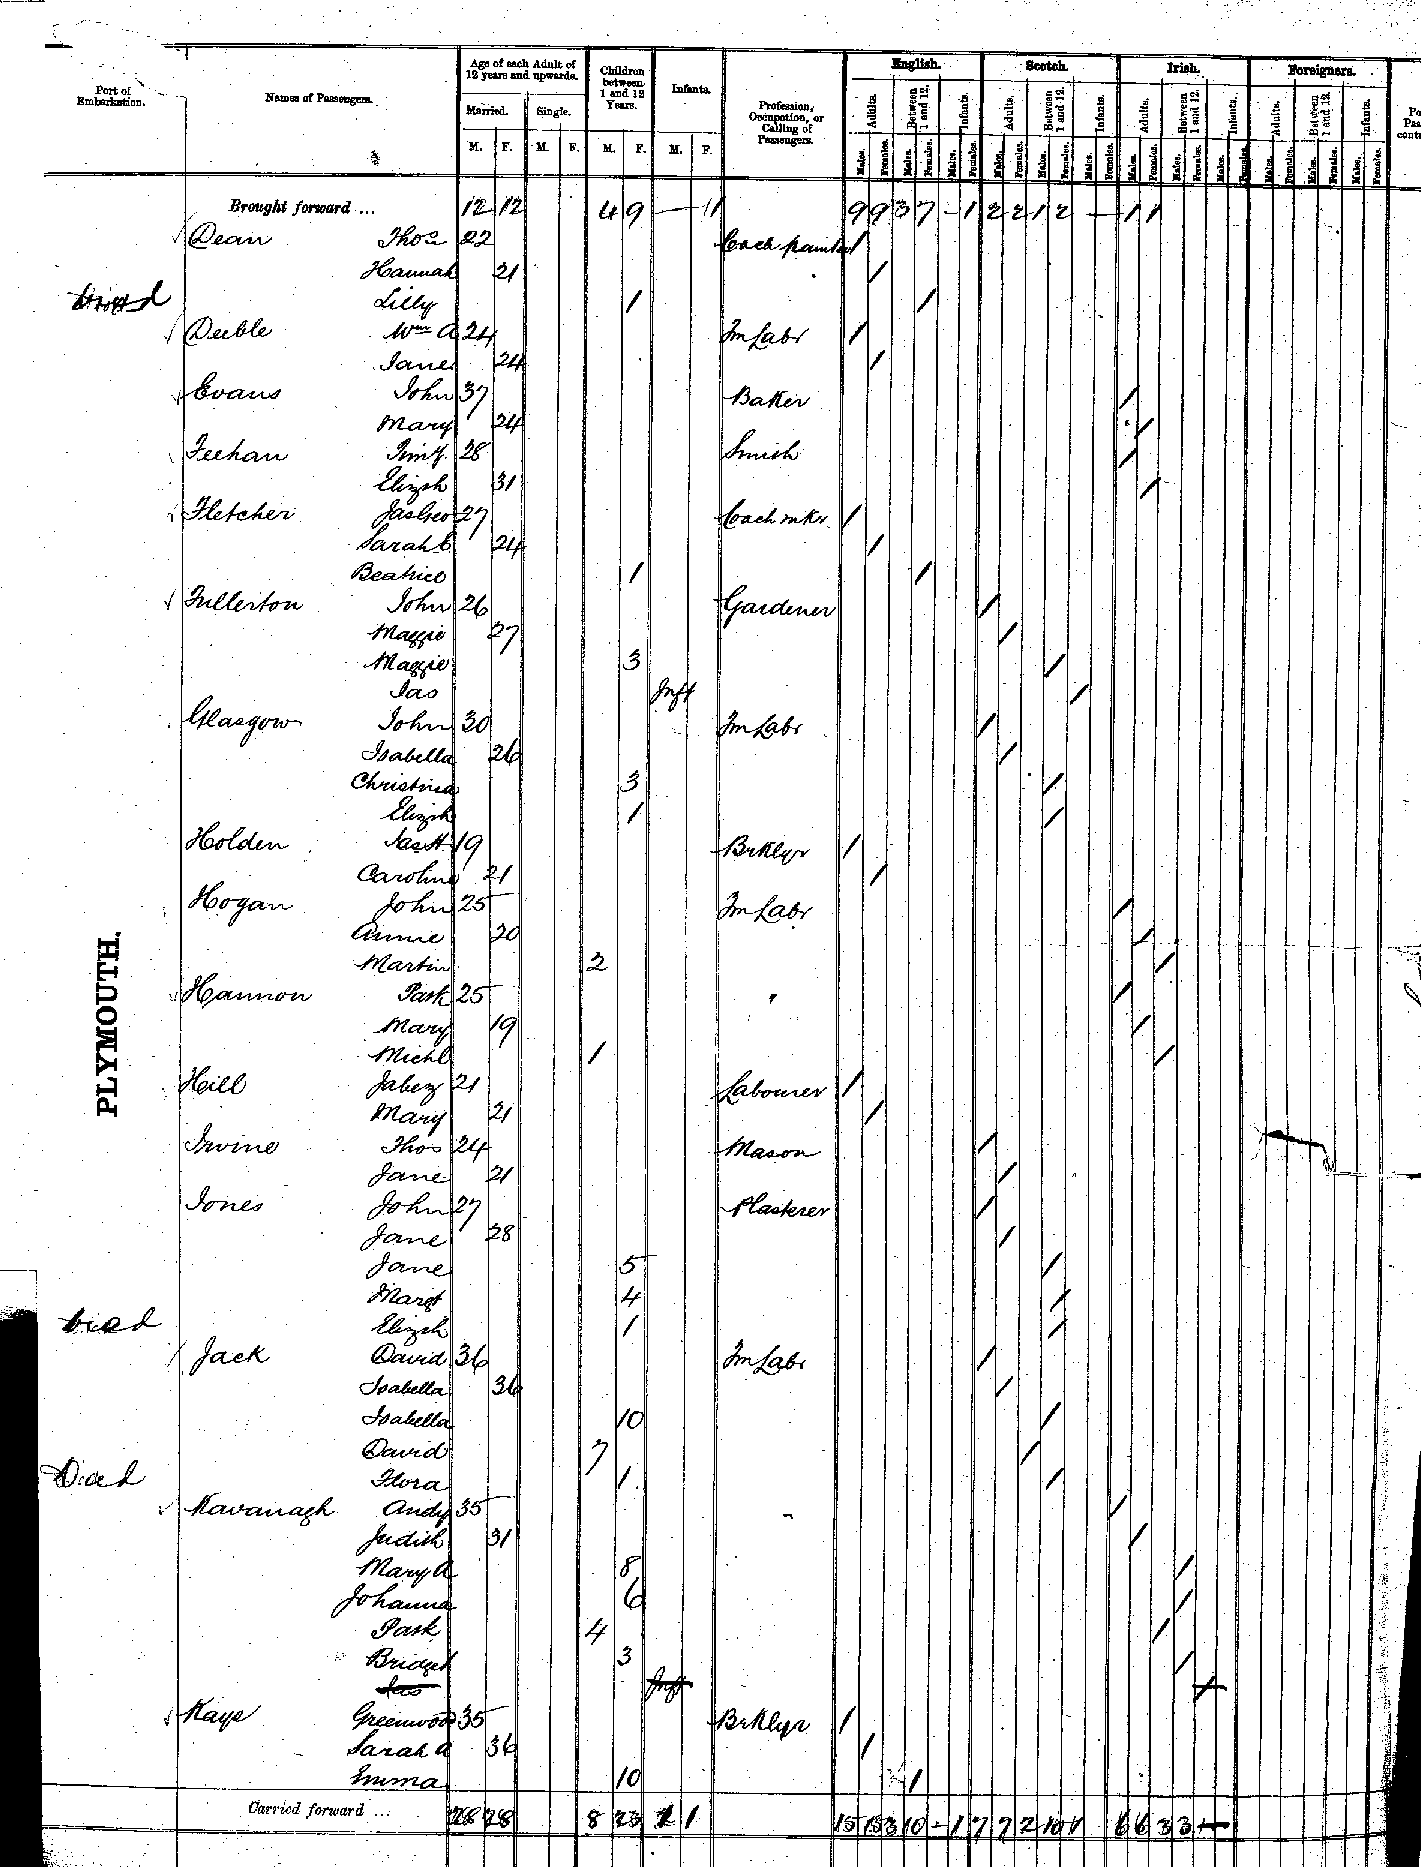 Port of Embarkation. Names of Passengers. Age of each Adult of 12 years and upwards. Children between 1 and 12 Years. Infants. Profession, Occupation, or Calling of Passengers. English. Scotch. Irish. Foreigners.
Married. Single. Adults. Between 1 and 12. Infants. Adults. Between 1 and 12. Infants. Adults. Between 1 and 12. Infants. Adults. Between 1 and 12. Infants.
M. F. M. F. M. F. M. F. Males. Females. Males. Females. Males. Females. Males. Females. Males. Females. Males. Females. Males. Females. Males. Females. Males. Females. Males. Females. Males. Females. Males. Females.
Brought forward ... 12 12 4 9 — 11 9 9 3 7 - 1 2 2 1 2 — 1 1
Dean Thos 22 Coach painter 1
Hannah 21 /
Lilly 1 /
Deeble Wm A 24 Fm Labr /
Jane 24 /
Evans John 37 Baker /
Mary 24 /
Feehan Timy. 28 Smith /
Elizth 31 /
Fletcher Jas Geo 27 Coach mkr /
Sarah E 24 /
Beatrice 1 /
Fullerton John 26 Gardener /
Maggie 27 /
Maggie 3 /
Jas Inft /
Glasgow John 30 Fm Labr /
Isabella 26 /
Christina 3 /
Elizth 1 /
Holden Jas H 19 Brklyr /
Caroline 21 /
Hogan John 25 Fm Labr /
Annie 20 /
Martin 2 /
Hannon Patk 25 " /
Mary 19 /
Michl 1 /
Hill Jabez 21 Labourer /
Mary 21 /
Irvine Thos 24 Mason /
Jane 21 /
Jones John 27 Plasterer /
Jane 28 /
Jane 5 /
Margt 4 /
Died Elizth 1 /
Jack David 36 Fm Labr /
Isabella 36 /
Isabella 10 /
David 7 /
Died Flora 1 /
Kavanagh Andy 35 - /
Judith 31 /
Mary A 8 /
Johanna 6 /
Patk 4 /
Bridget 3 /
Jas Inft /
Kaye Greenwood 35 Brklyr /
Sarah A 36 /
Emma 10 /
PLYMOUTH.
Carried forward ... 28 28 8 23 1 1 15 15 3 10 - 1 7 7 2 10 1 6 6 3 3